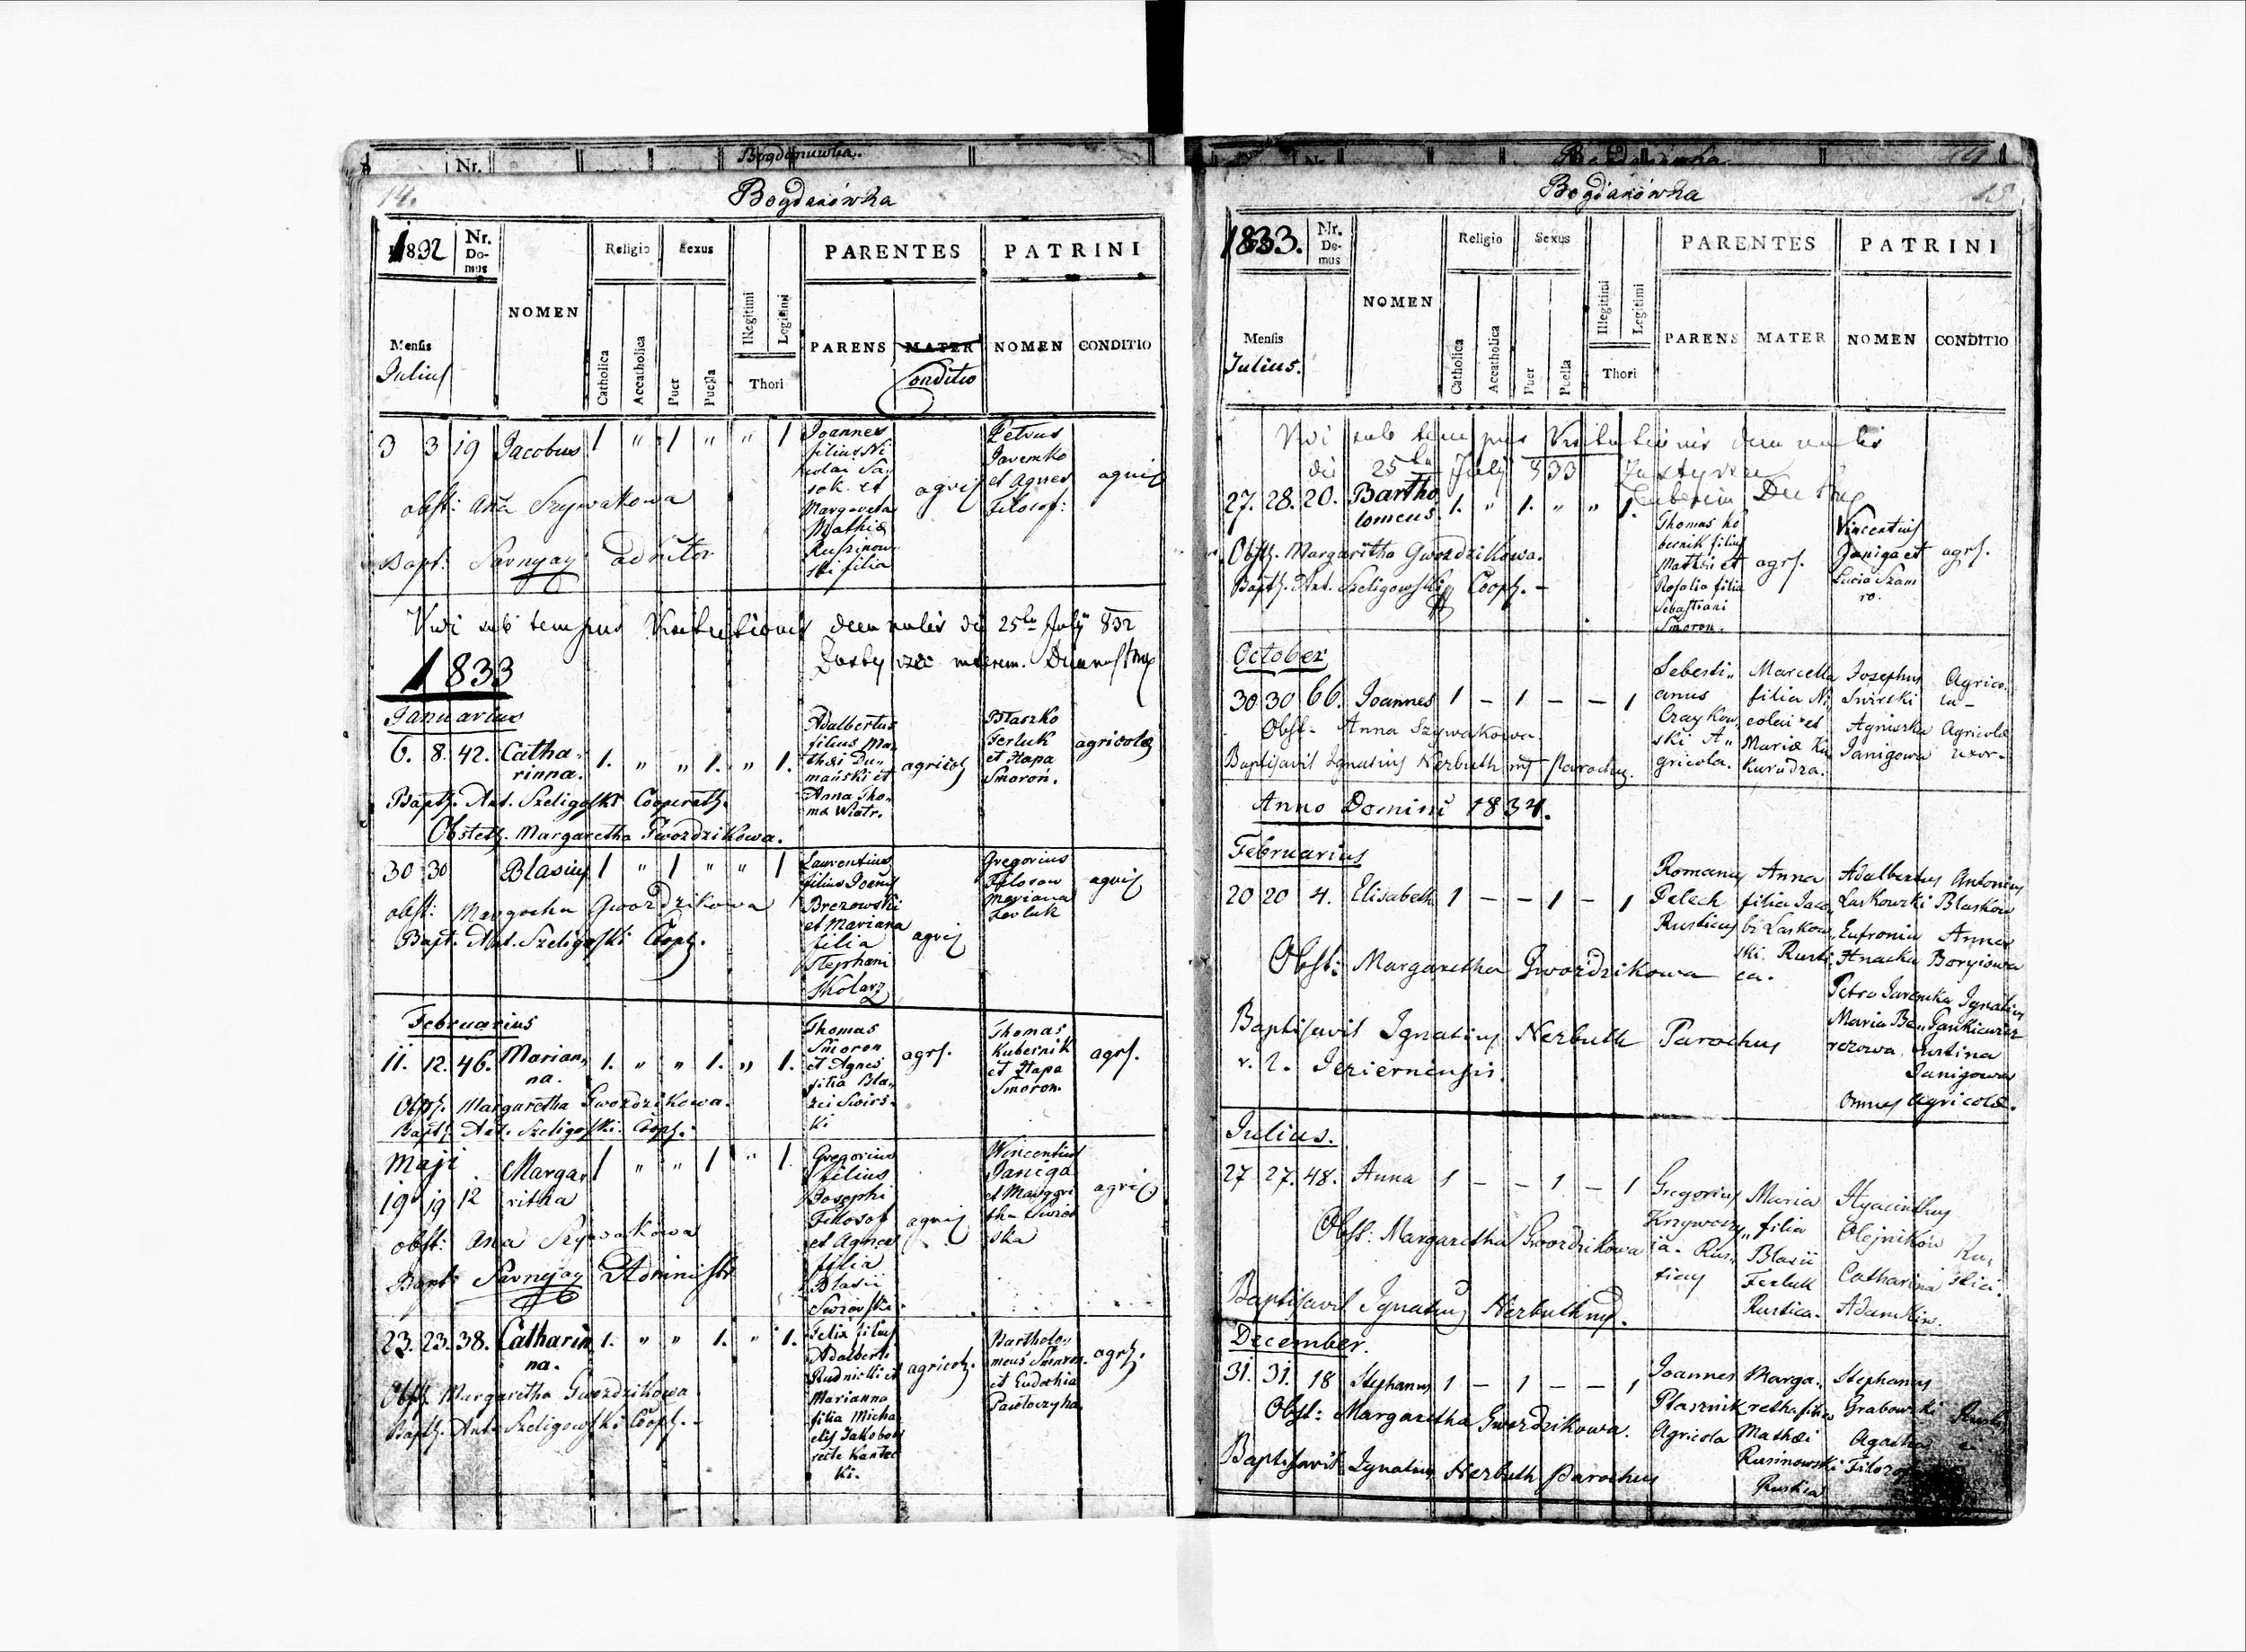 Bogdanuwka.
Nr.
14.
Bogdanówka
1832
Nr. Domus
NOMEN
Religio
Sexus
PARENTES
PATRINI
Mensis
Julius
Catholica
Accatholica
Puer
Puella
Illegitimi
Legitimi
Thori
PARENS
MATER
Conditio
NOMEN
CONDITIO
3 3 19 Jacobus 1 " 1 " " 1
Joannes
filius Ni
colai Sa
sok et
Margareta
Mathiæ
Rusinow
ski filia
agric
Petrus
Javemko
et Agnes
Filosof:
agric
obst: Aña Szywakowa
Bapt:
Vidi sub tempus Visitationis decanalis die 25ta July 832
1833
Januarius
6. 8. 42. Catha-
rinna. 1. " " 1. " 1.
Adalbertus
filius Ma
thæi Du-
mański et
Anna Tho-
ma Wiatr.
agricol
Błaszko
Ferluk
et Hapa
Smoroń.
agricolæ
Bapt. Ant. Szeligoski Cooperat.
Obstet. Margaretha Gwozdzikowa.
30 30 Blasius 1 " 1 " " 1
Laurentius
filius Joañis
Brezowski
et Mariana
filia
Stephani
Skolarz
agric
Gregorius
Filosow
Mariana
Zerluk
agric
obst: Margocha Gwozdzikowa
Bapt. Ant. Szeligoski Coop.
Februarius
11. 12. 46. Marian-
na. 1. " " 1. " 1.
Thomas
Smoron
et Agnes
filia Bla-
zei Swirs-
ki
agr.
Thomas
Kubernik
et Hapa
Smoron.
agr.
Obst. Margaretha Gwozdzikowa.
Bapt. Ant. Szeligoski. Coop.
Maji
19 19 12 Marga
ritha 1 " " 1 " 1
Gregorius
filius
Josephi
Filosof
et Agnes
filia
Blasii
Swirski.
agric
Wincentius
Janiga
et Margari
tha Swirs
ska
agric
obst: Aña Szywakowa
Bapt: Administr
23. 23. 38. Catharin
na. 1. " " 1. " 1.
Felix filius
Adalberti
Rudnicki et
Marianna
filia Micha
elis Jakobow
recte Kantec
ki.
agricol.
Bartholo-
meus Smoron.
et Eudochia
Pawłoczyha
agr.
Obst. Margaretha Gwozdzikowa
Bapt. Ant. Szeligowski Coop.
Bogdanówka
15
1833.
Nr. Domus
NOMEN
Religio
Sexus
PARENTES
PATRINI
Mensis
Julius.
Catholica
Accatholica
Puer
Puella
Illegitimi
Legitimi
Thori
PARENS
MATER
NOMEN
CONDITIO
Vidi sub tempus Visitationis decanalis
die 25ta July 833
27. 28. 20. Bartho
lomeus. 1. " 1. " " 1.
Thomas Ko
bernik filius
Mathei et
Rosalia filia
Sebastiani
Smoron.
agr.
Vincentius
Janiga et
Lucia Szam
ro.
agr.
Obst. Margaritha Gwozdzikowa.
Bapt. Ant. Szeligowski Coop.
October
30 30 66. Joannes 1 – 1 – – 1
Sebasti-
anus
Czaykow
ski A-
gricola.
Marcella
filia Ni
colai et
Mariæ Ku
kurudza.
Josephus
Swirski
Agnieszka
Janigowa
Agrico-
la
Agricolæ
uxor
Obst- Anna Szywakowa.
Baptisavit Ignatius Herbuth mp Parochus.
Anno Domini 1834.
Februarius
20 20 4. Elisabeth 1 – – 1 – 1
Romanus
Pelech
Rusticus
Anna
filia Jaco
bi Laskow
ski. Rusti
ca.
Adalbertus
Laskowski
Eufronia
Hnacka
Petro Jaremka
Maria Ba-
rezowa
Antonius
Blaskow
Anna
Borysowa
Ignatius
Pankiewicz
Justina
Janigowa
Omnes Agricolæ.
Obst: Margaretha Gwozdzikowa
Baptisavit Ignatius Herbuth Parochus
r. l. Jeziernensis.
Julius.
27 27. 48. Anna 1 – – 1 – 1
Gregorius
Krzywoszy-
ja- Rus-
ticus
Maria
filia
Blasii
Ferluk
Rustica.
Hyacinthus
Olejników
Catharina
Adamkiw.
Ru-
stici.
Obst: Margaretha Gwozdzikowa
Baptisavit Ignatius Herbuth mp.
December.
31. 31. 18 Stephanus 1 – 1 – – 1
Joannes
Ptasznik
Agricola
Marga-
retha filia
Mathæi
Rusinowski
Rustica
Stephanus
Grabowski
Agatha
Filozof
Obst: Margaretha Gwozdzikowa.
Baptisavit Ignatius Herbuth Parochus